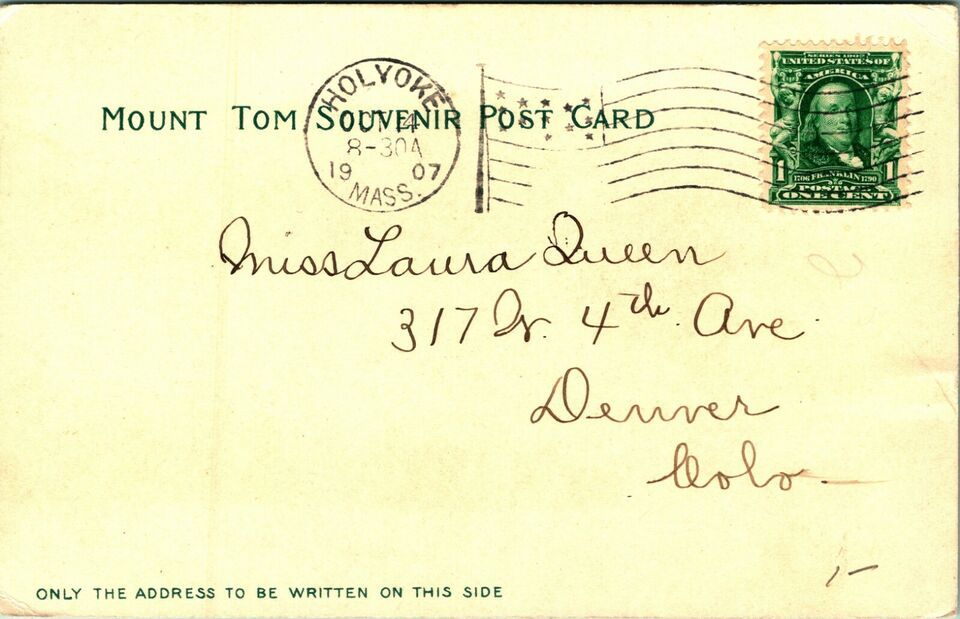 HOLYOKE
MOUNT TOM SOUVENIR POST CARD
8-30A
19 07
MASS.
SERIES 1902
UNITED STATES OF
AMERICA
1 1
1706 FRANKLIN 1790
POSTAGE
ONE CENT
Miss Laura Queen
317 W. 4th. Ave
Denver
Colo
1-
ONLY THE ADDRESS TO BE WRITTEN ON THIS SIDE